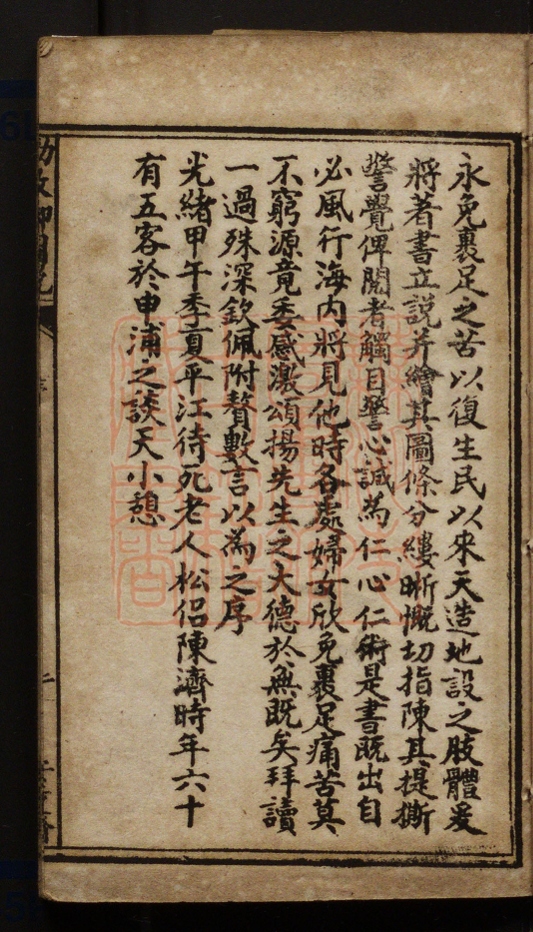 永免裹足之苦以復生民以來天造地設之肢體爰
將著書立説并繪其圖條分縷晰慨切指陳其提撕
警覺俾閱者觸目警心誠為仁心仁術是書既出自
必風行海内將見他時各處婦女欣免裹足痛苦莫
不窮源竟委感激頌揚先生之大德於無既矣拜讀
一過殊深欽佩附贅數言以為之序
光緒甲午季夏平江待死老人松侣陳濟時年六十
有五客於申浦之談天小憩